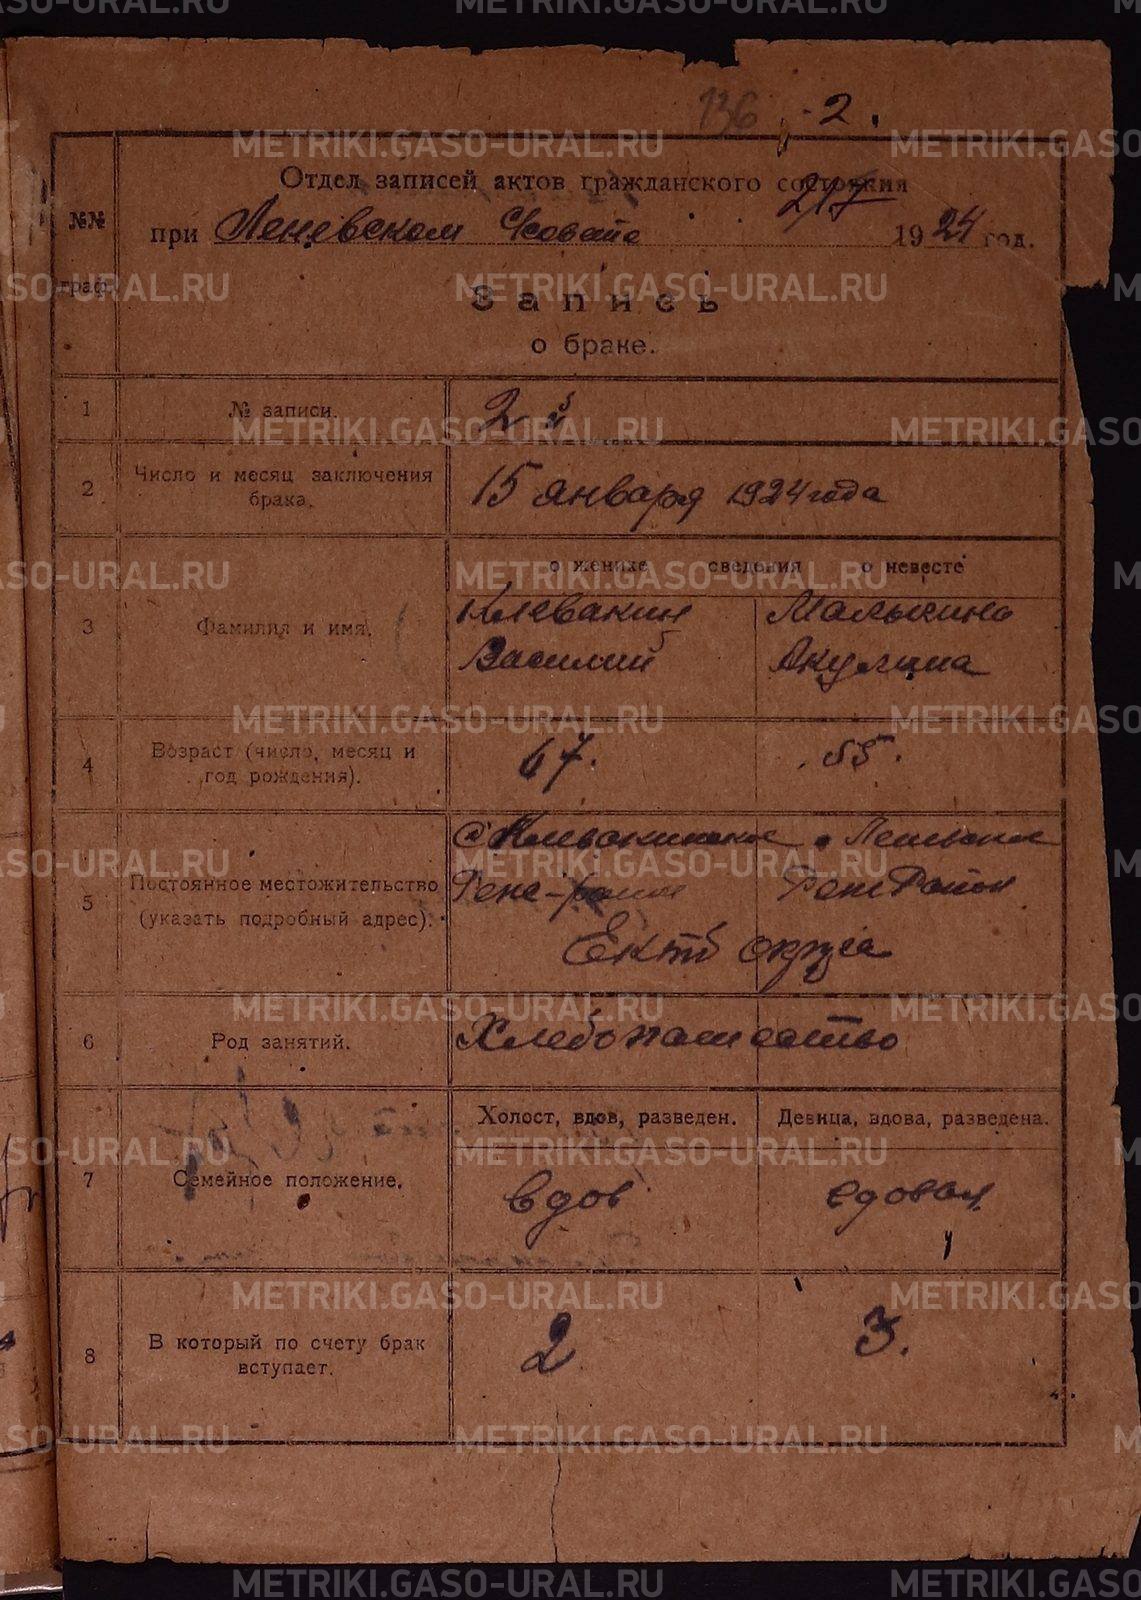 136 - 2.
Отдел записей актов гражданского состояния
217
при Леневском С/совете 1924 год.
№№ граф.
Запись
о браке.
1 № записи. 2й
2 Число и месяц заключения брака. 15 января 1924 года
о женихе сведения о невесте
3 Фамилия и имя. Клевакин Малыгина
Василий Акулина
4 Возраст (число, месяц и год рождения). 67. 55.
5 Постоянное местожительство (указать подробный адрес). с Клевакинское с Леневское
Реж район Реж Район
Ектб округа
6 Род занятий. Хлебопашество
Холост, вдов, разведен. Девица, вдова, разведена.
7 Семейное положение. вдов вдовая
8 В который по счету брак вступает. 2 3.
METRIKI.GASO-URAL.RU